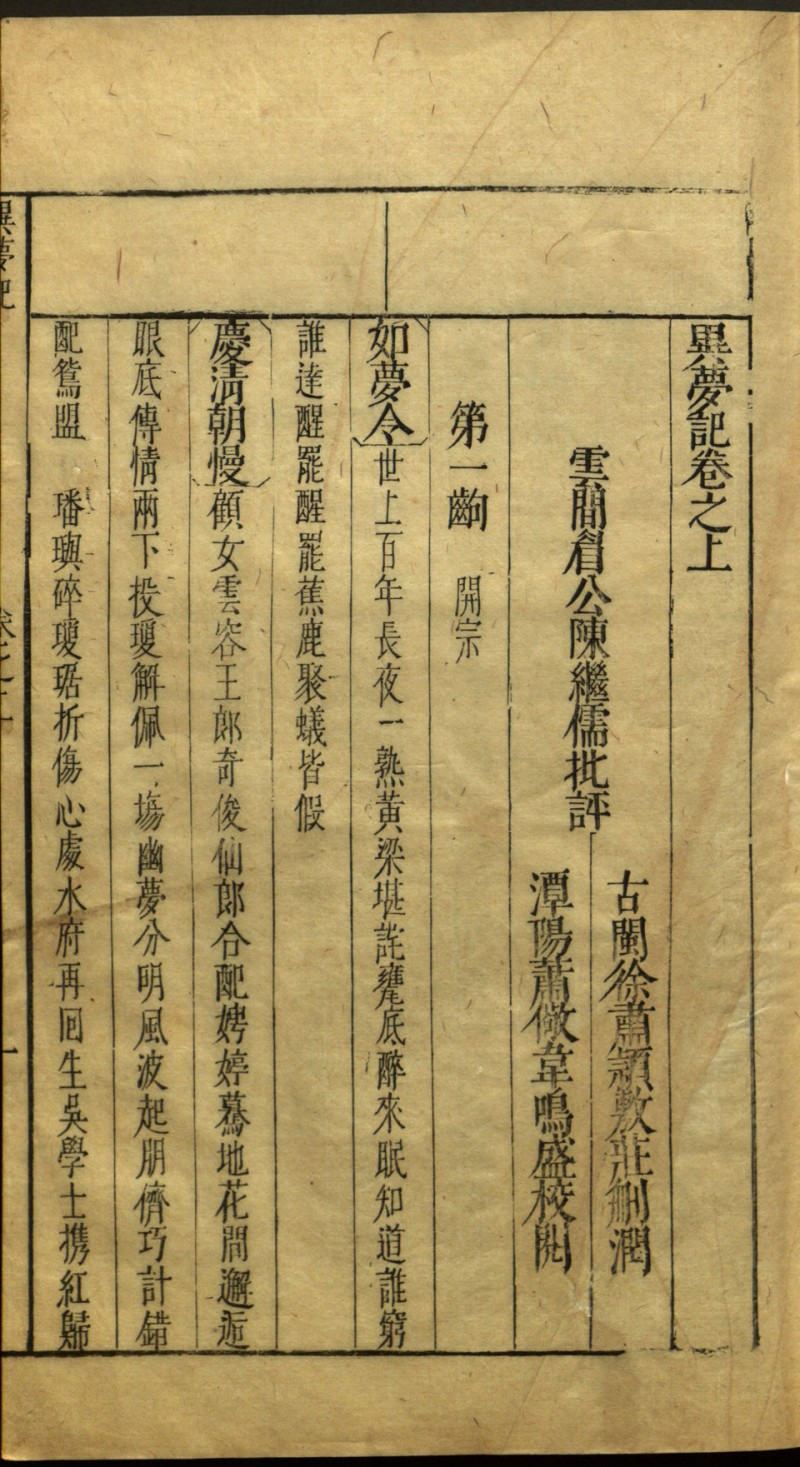 異夢記卷之上
雲間眉公陳繼儒批評
古閩徐肅潁敷莊刪潤
潭陽蕭儆韋鳴盛校閱
第一齣　開宗
如夢令世上百年長夜一熟黃梁堪詫甕底醉來眠知道誰窮
誰達醒罷醒罷蕉鹿聚蟻皆假
慶清朝慢顧女雲容王郎奇俊仙郎合配娉婷驀地花間邂逅
眼底傳情兩下投瓊解佩一場幽夢分明風波起朋儕巧計錯
配鴛盟　璠璵碎瓊琚折傷心處水府再回生吳學士携紅歸
異夢記
卷之上
一